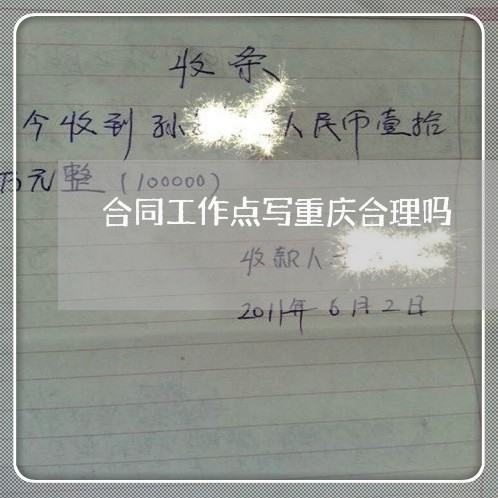 收条
今收到孙 人民币壹拾
万元整(100000)
合同工作点写重庆合理吗
收款人
2011年6月2日